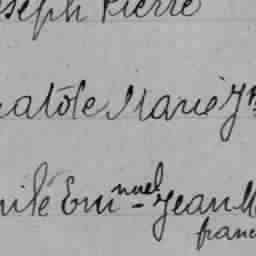 seph Pierre
natole Marie J
mile Em-nuel Jean M
franc